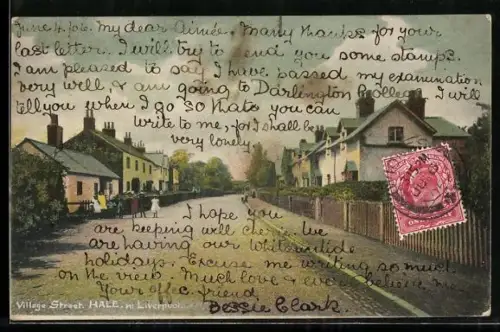 June 4. /06. My dear Aimée. Many thanks for your
last letter. I will try to send you some stamps.
I am pleased to say I have passed my examination
very well, & am going to Darlington College. I will
tell you when I go so thats you can
write to me, for I shall be
very lonely.
I hope you
are keeping well cherie. We
are having our Whitsuntide
holidays. Excuse me writing so much
on the view. Much love & ever believe me
Your affec. friend.
Bessie Clark.
Village Street. HALE, nr Liverpool.